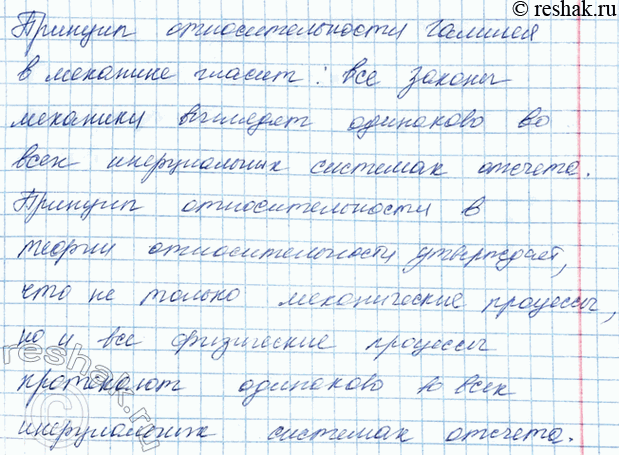 © reshak.ru
Принцип относительности Галилея
в механике гласит: все законы
механики выглядят одинаково во
всех инерциальных системах отсчета.
Принцип относительности в
теории относительности утверждает,
что не только механические процессы,
но и все физические процессы
протекают одинаково во всех
инерциальных системах отсчета.
reshak.ru